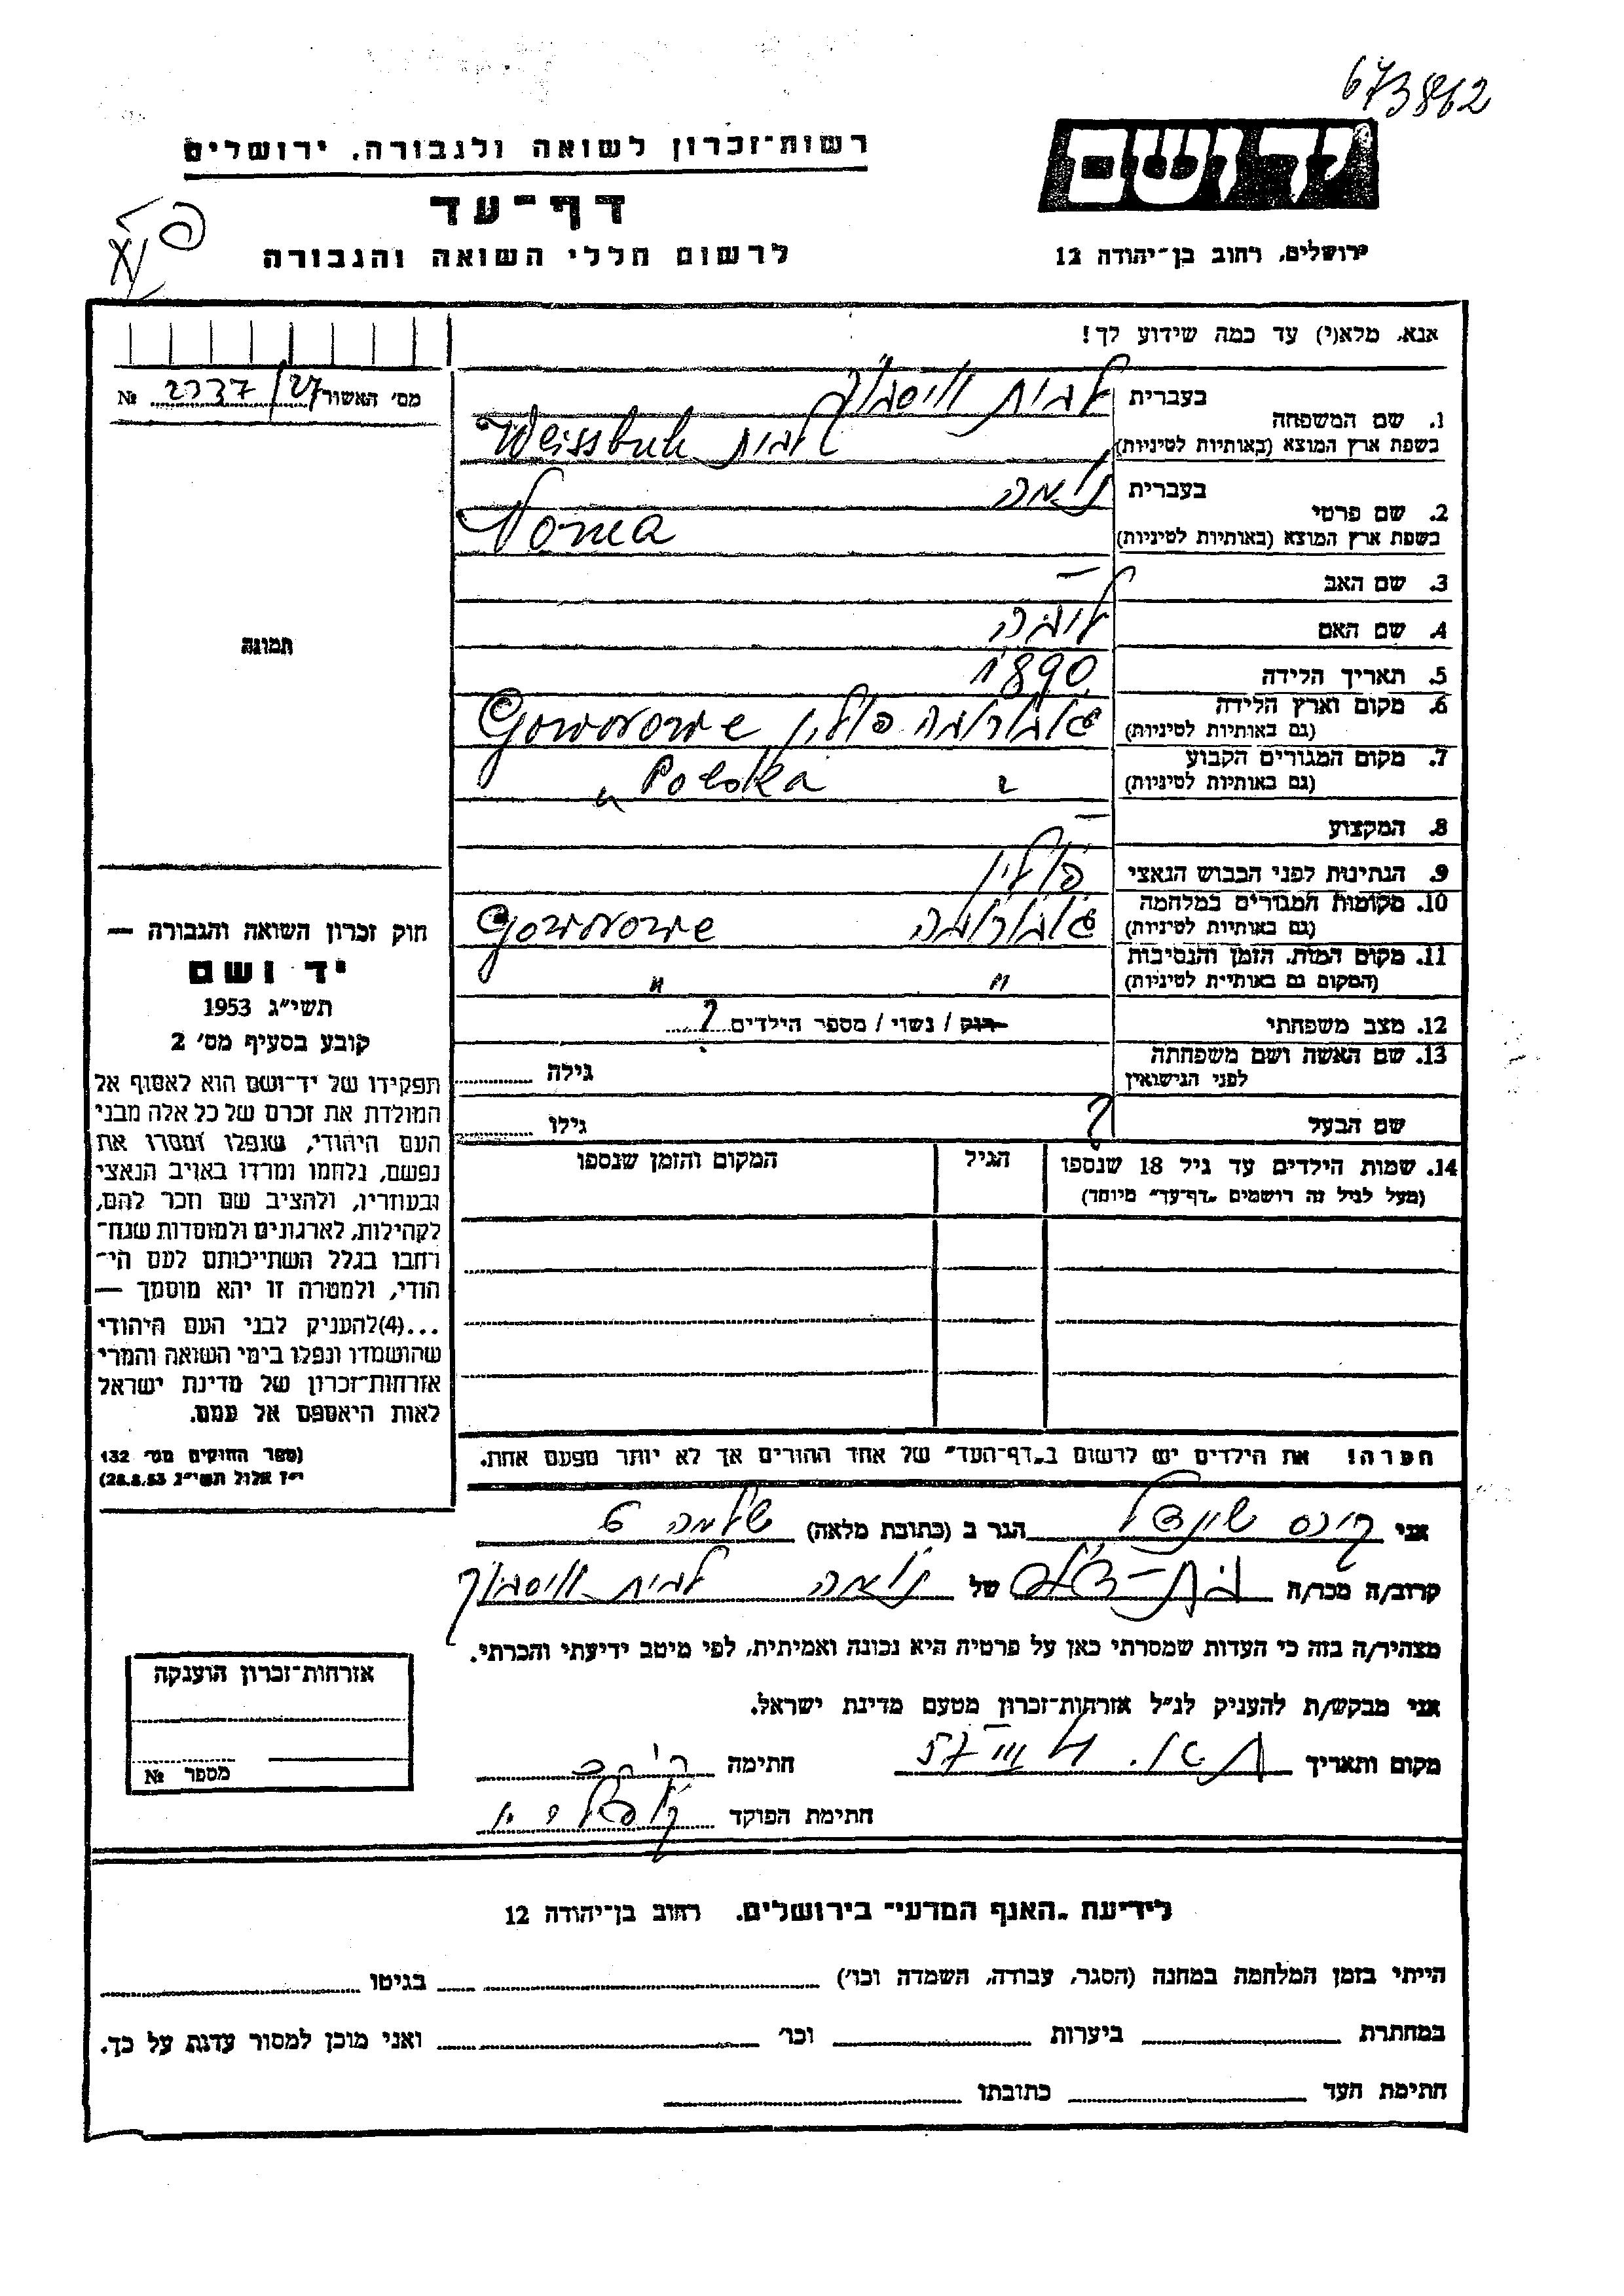 673862
רשות־זכרון לשואה ולגבורה, ירושלים
יד ושם
דף־עד
לרשום חללי השואה והגבורה
ירושלים, רחוב בן־יהודה 12
אנא, מלא(י) עד כמה שידוע לך!
מס׳ האשור 27/2337 №
1. שם המשפחה בעברית לבית וויסבוך
בשפת ארץ המוצא (באותיות לטיניות) לבית Weissbuch
2. שם פרטי בעברית נומה
בשפת ארץ המוצא (באותיות לטיניות) Noma
3. שם האב —
4. שם האם ליבה
5. תאריך הלידה 1890
6. מקום וארץ הלידה
(גם באותיות לטיניות) גוברובה פולין, Goworowe
7. מקום המגורים הקבוע
(גם באותיות לטיניות) " Polska "
8. המקצוע —
9. הנתינות לפני הכבוש הנאצי פולין
10. מקומות המגורים במלחמה
(גם באותיות לטיניות) גוברובה Goworowe
11. מקום המות, הזמן והנסיבות
(המקום גם באותיות לטיניות) " "
12. מצב משפחתי רווק / נשוי / מספר הילדים ?
13. שם האשה ושם משפחתה
לפני הנישואין גילה
שם הבעל ? גילו
14. שמות הילדים עד גיל 18 שנספו הגיל המקום והזמן שנספו
(מעל לגיל זה רושמים „דף־עד" מיוחד)
הערה! את הילדים יש לרשום ב„דף־העד" של אחד ההורים אך לא יותר מפעם אחת.
תמונה
חוק זכרון השואה והגבורה —
יד ושם
תשי״ג 1953
קובע בסעיף מס׳ 2
תפקידו של יד־ושם הוא לאסוף אל
המולדת את זכרם של כל אלה מבני
העם היהודי, שנפלו ומסרו את
נפשם, נלחמו ומרדו באויב הנאצי
ובעוזריו, ולהציב שם וזכר להם,
לקהילות, לארגונים ולמוסדות שנח־
רבו בגלל השתייכותם לעם הי־
הודי, ולמטרה זו יהא מוסמך —
...(4)להעניק לבני העם היהודי
שהושמדו ונפלו בימי השואה והמרי
אזרחות־זכרון של מדינת ישראל
לאות היאספם אל עמם.
(ספר החוקים מס׳ 132
י״ז אלול תשי״ג 28.8.53)
אני שיינדל הגר ב (כתובת מלאה) שלמה 6
קרוב/ה מכר/ה בת-דודה של נומה לבית וויסבוך
מצהיר/ה בזה כי העדות שמסרתי כאן על פרטיה היא נכונה ואמיתית, לפי מיטב ידיעתי והכרתי.
אני מבקש/ת להעניק לנ״ל אזרחות־זכרון מטעם מדינת ישראל.
מקום ותאריך ת״א. III 57 חתימה
חתימת הפוקד
אזרחות־זכרון הוענקה
מספר №
לידיעת „האגף המדעי" בירושלים, רחוב בן־יהודה 12
הייתי בזמן המלחמה במחנה (הסגר, עבודה, השמדה וכו׳) בגיטו
במחתרת ביערות וכו׳ ואני מוכן למסור עדות על כך.
חתימת העד כתובתו